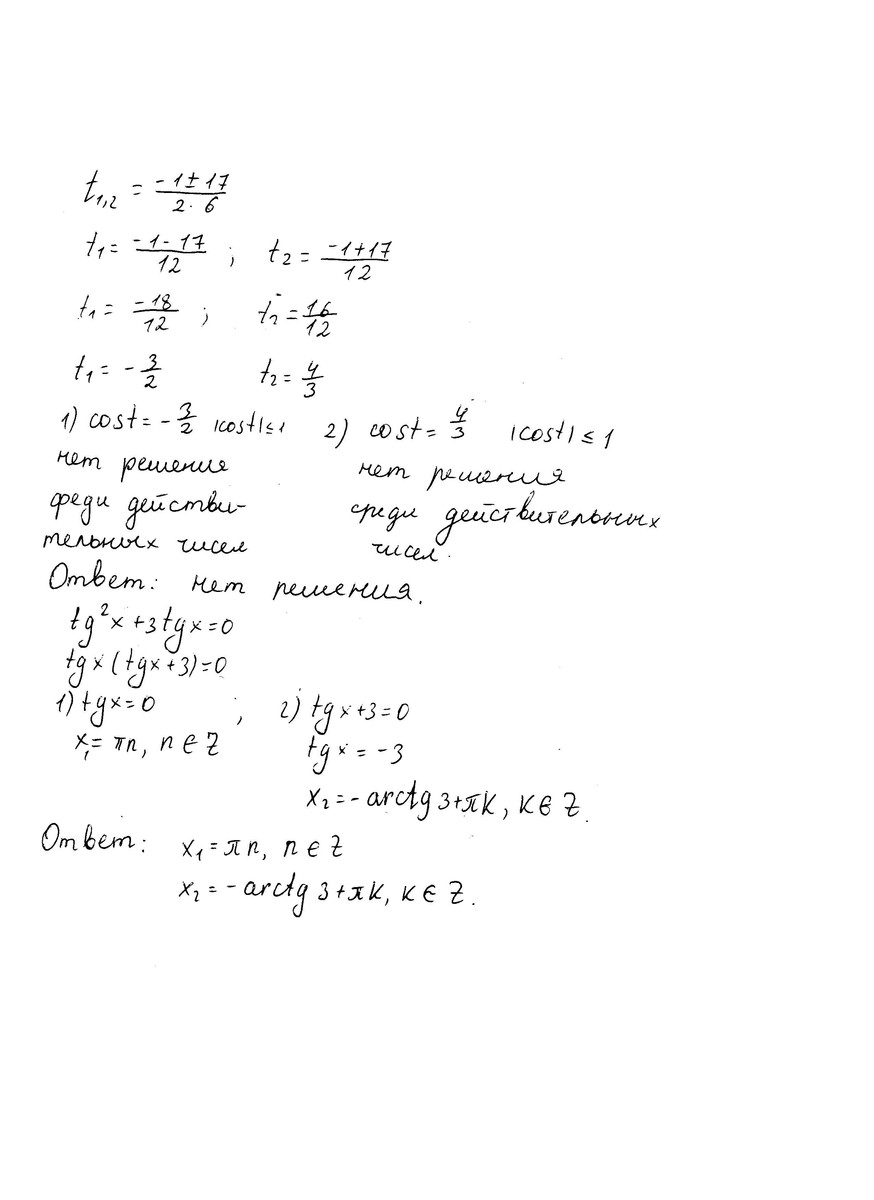 t₁,₂ = (-1 ± 17)/(2 · 6)
t₁ = (-1 - 17)/12 ; t₂ = (-1 + 17)/12
t₁ = -18/12 ; t₂ = 16/12
t₁ = -3/2 t₂ = 4/3
1) cost = -3/2 |cost| ≤ 1 2) cost = 4/3 |cost| ≤ 1
нет решения нет решения
среди действи- среди действительных
тельных чисел чисел.
Ответ: нет решения.
tg²x + 3tgx = 0
tgx (tgx + 3) = 0
1) tgx = 0 ; 2) tgx + 3 = 0
x₁ = πn, n ∈ Z tgx = -3
x₂ = -arctg 3 + πk, k ∈ Z.
Ответ: x₁ = πn, n ∈ Z
x₂ = -arctg 3 + πk, k ∈ Z.